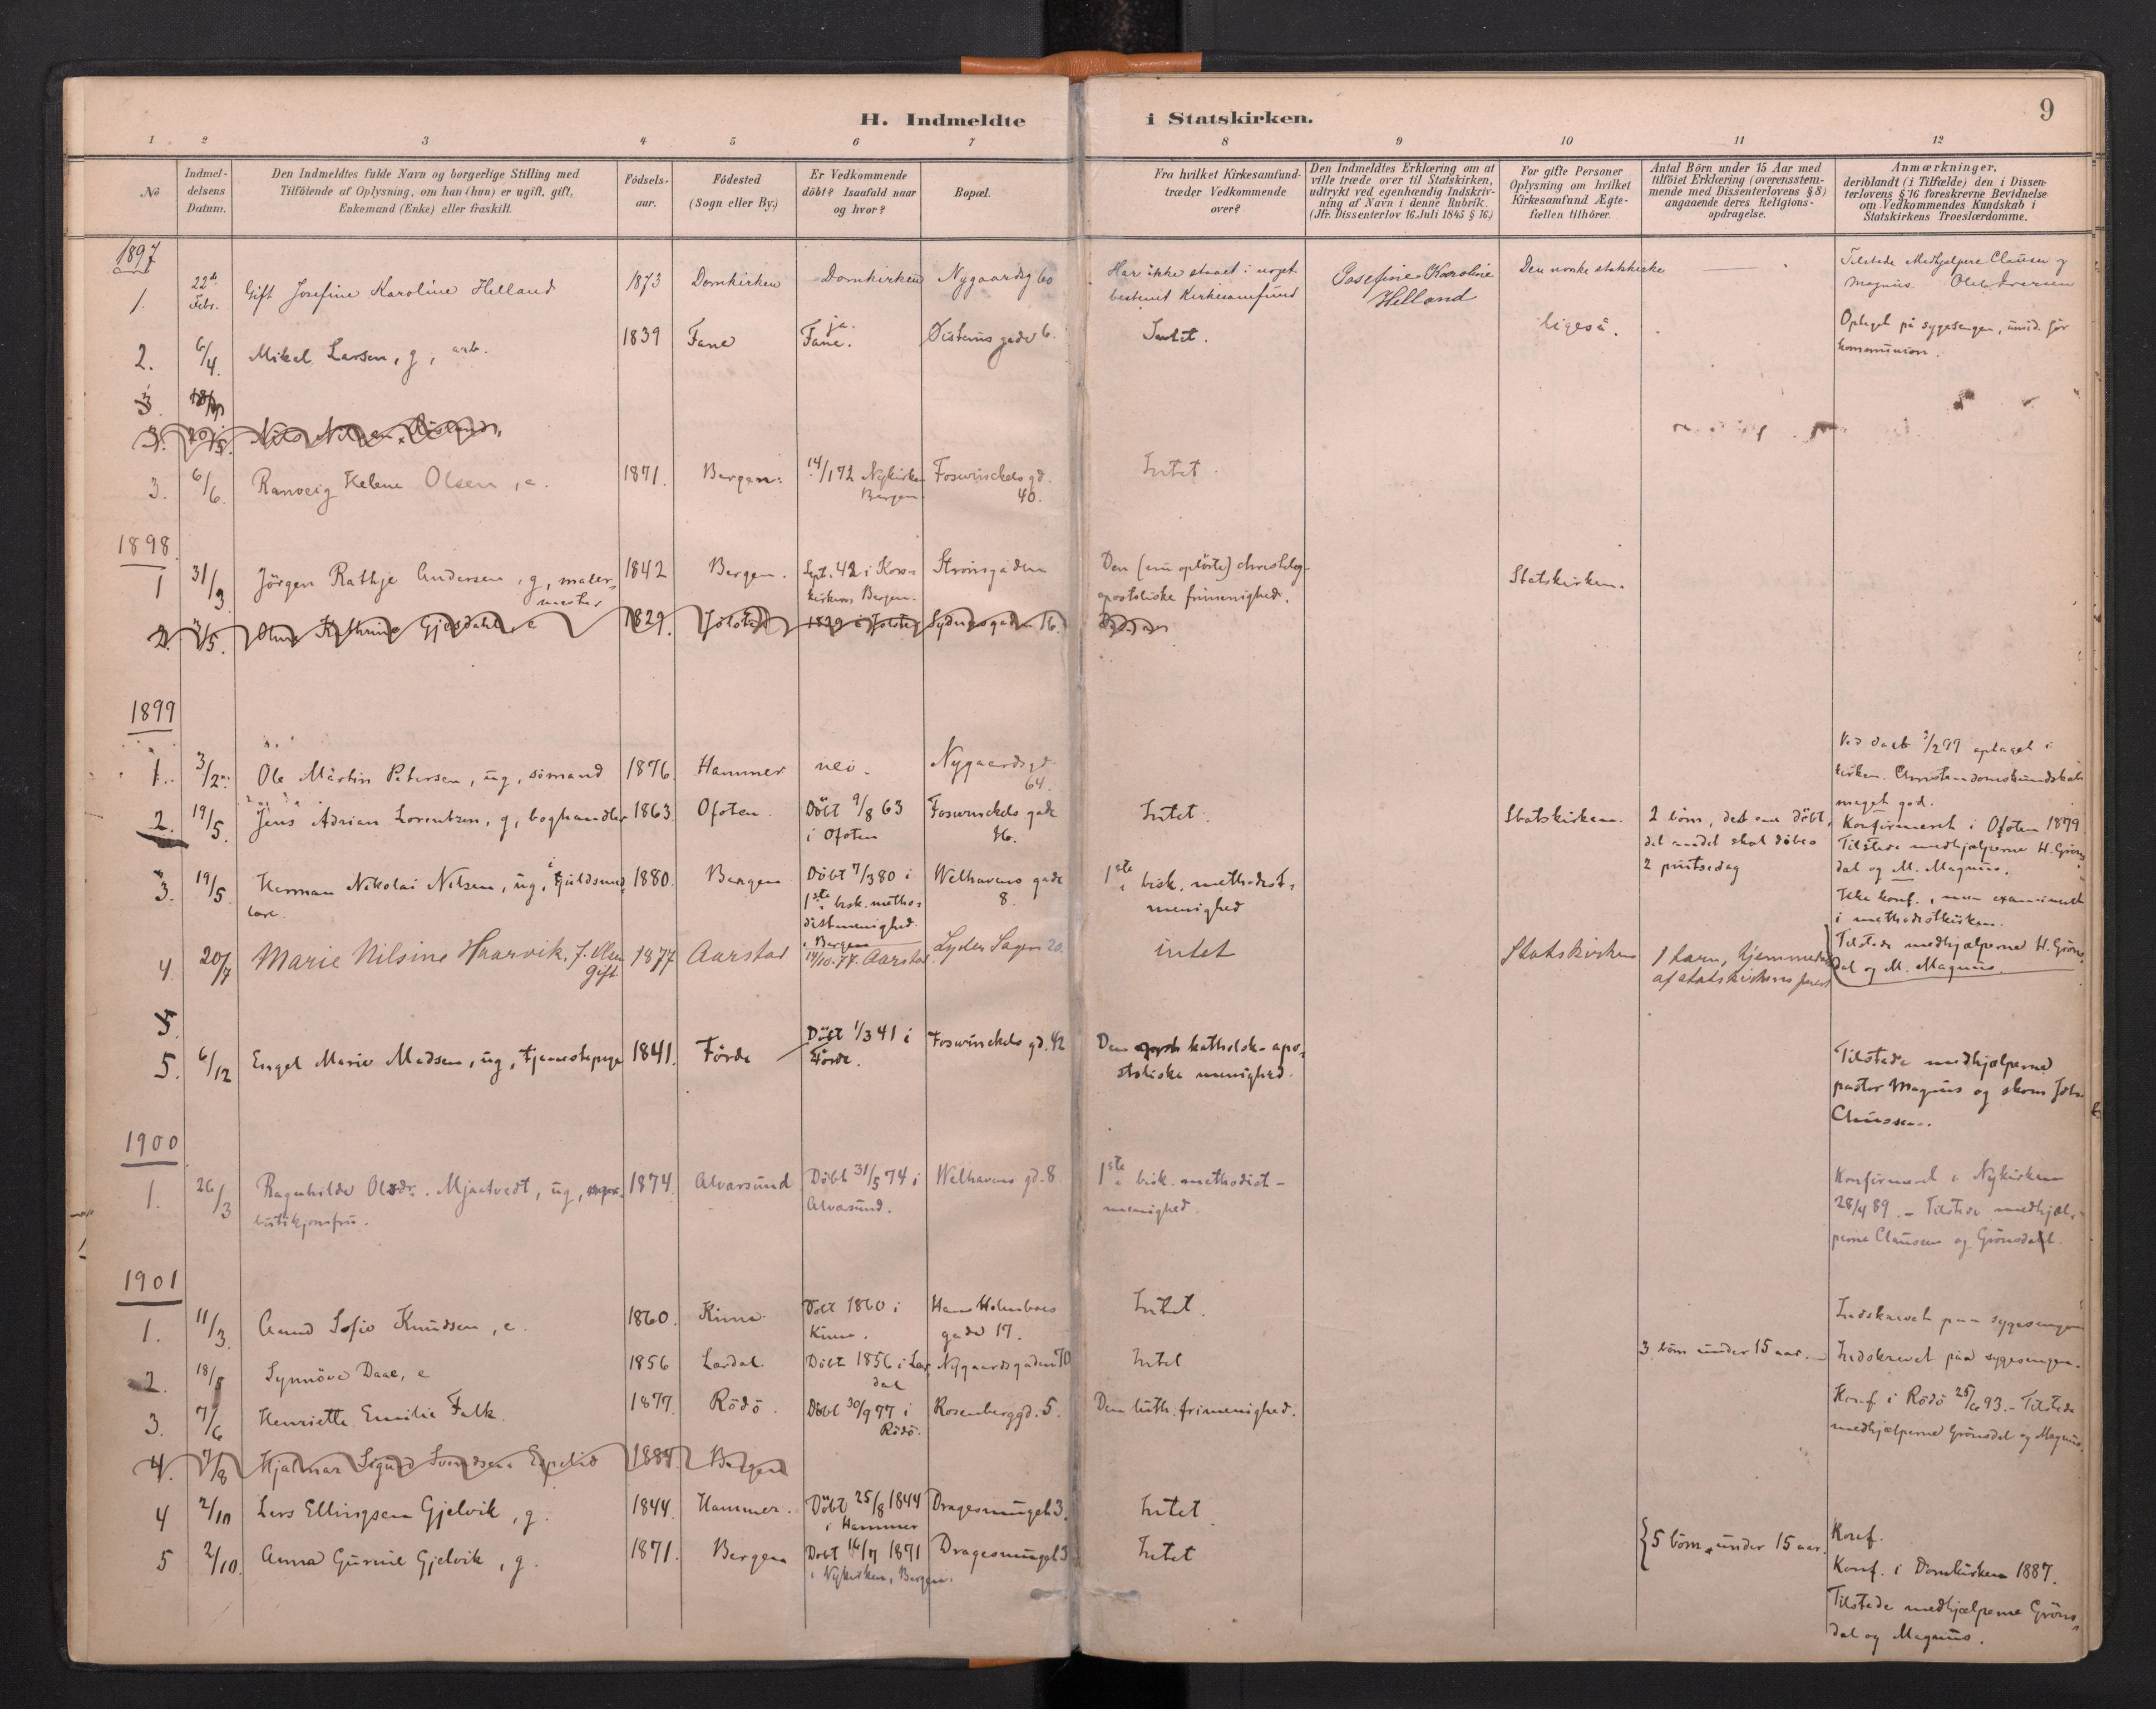 9
H. Indmeldte i Statskirken.
1 2 3 4 5 6 7 8 9 10 11 12
No
Indmel-
delsens
Datum.
Den Indmeldtes fulde Navn og borgerlige Stilling med
Tilföiende af Oplysning, om han (hun) er ugift, gift,
Enkemand (Enke) eller fraskilt.
Födsels-
aar.
Födested
(Sogn eller By.)
Er Vedkommende
döbt? Isaafald naar
og hvor?
Bopæl.
Fra hvilket Kirkesamfund
træder Vedkommende
over?
Den Indmeldtes Erklæring om at
ville træde over til Statskirken,
udtrykt ved egenhændig Indskriv-
ning af Navn i denne Rubrik.
(Jfr. Dissenterlov 16. Juli 1845 § 16.)
For gifte Personer
Oplysning om hvilket
Kirkesamfund Ægte-
fællen tilhörer.
Antal Börn under 15 Aar med
tilföiet Erklæring (overensstem-
mende med Dissenterlovens § 8)
angaaende deres Religions-
opdragelse.
Anmærkninger.
deriblandt (i Tilfælde) den i Dissen-
terlovens § 16 foreskrevne Bevidnelse
om Vedkommendes Kundskab i
Statskirkens Troeslærdomme.
1897
1. 22de Febr. Gift Josefine Karoline Helland 1873 Domkirken Domkirken Nygaardsg 60
Har ikke staaet i noget
bestemt Kirkesamfund
Josefine Karoline
Helland
Den norske statskirke
Tilstede Medhjælpere Clausen og
Magnus.
2. 6/4. Mikal Larsen, g, arb. 1839 Fane ja. Fane. Øisteins gade 6. Intet. ligeså.
Optaget på sygesengen,
kommunion.
3
3. Nils
3. 6/6. Ranveig Helene Olsen, e. 1871. Bergen. 14/1 72 Nykirken
Bergen. Foswinckels gd.
40. Intet.
1898
1 31/3 Jörgen Rathje Andersen, g, maler-
mester 1842 Bergen. Sept. 42 i Kors-
kirken Bergen. Strömgaden
Den (nu oplöste) christelig-
apostoliske frimenighed.
Statskirken.
2. /5. Kathrine Gjesdahl, e 1829. Jölster 1829 i Jölster Sydnesgaden 16.
1899
1. 3/2 Ole Martin Petersen, ug, sömand 1876. Hammer nei. Nygaardsgd
64.
Ved daab 3/2 99 optaget i
kirken. Christendomskundskab
meget god.
2. 19/5. Jens Adrian Lorentzen, g, boghandler 1863. Ofoten. Döbt 9/8 63
i Ofoten Foswinckels gade
16. Intet. Statskirken.
2 börn, det ene döbt,
det andet skal döbes
2 pintsedag
Konfirmeret i Ofoten 1879
Tilstede medhjælperne H. Gröns-
dal og M. Magnus.
3. 19/5. Herman Nikolai Nilsen, ug, guldsmed-
lære. 1880. Bergen Döbt 7/3 80 i
1ste bisk. metho-
distmenighed
i Bergen Welhavens gade
8.
1ste bisk. methodist-
menighed
Ikke konf., men examineret
i methodistkirken.
Tilstede medhjælperne H. Gröns-
dal og M. Magnus.
4. 20/7 Marie Nilsine Haarvik, f. Olsen
Gift 1877 Aarstad 14/10.77. Aarstad. Lyder Sagen 20. intet Statskirken
1 barn, hjemmedöbt
af statskirkens prest
5.
5. 6/12 Engel Marie Madsen, ug, tjenestepige 1841. Förde Döbt 1/3 41 i
Förde. Foswinckels gd. 42
Den katholsk-apo-
stoliske menighed.
Tilstede medhjælperne
pastor Magnus og skom. Joh.
Clausen.
1900
1. 26/3 Ragnhilde Olsdr. Mjaatvedt, ug,
butikjomfru. 1874. Alvarsund Döbt 31/5 74 i
Alvarsund. Welhavens gd. 8.
1ste bisk. methodist-
menighed.
Konfirmeret i Nykirken
28/4 89. – Tilstede medhjæl-
perne Clausen og Grönsdahl.
1901
1. 11/3 Sofie Knudsen, e. 1860. Kinn. Döbt 1860 i
Kinn. Hans Holmboes
gade 17. Intet.
Indskrevet paa sygesengen
2. 18/5 Synnöve Daae, e 1856 Lærdal. Döbt 1856 i Lær-
dal Nygaardsgaden 70 Intet
3 börn under 15 aar. Indskrevet paa sygesengen.
3. 7/6 Henriette Emilie Falk. 1877. Rödö. Döbt 30/9 77 i
Rödö. Rosenberggd. 5. Den luth. frimenighed.
Konf. i Rödö 25/6 93. – Tilstede
medhjælperne Grönsdal og Magnus.
4. 7/8 Hjalmar Sigurd Svendsen Espelid 1884. Bergen
4 2/10 Lars Ellingsen Gjelvik, g. 1844. Hammer. Döbt 25/8 1844
i Hammer Dragesmuget 3. Intet.
Konf.
5 2/10. Anna Gurine Gjelvik, g. 1871. Bergen Döbt 16/7 1871
i Nykirken, Bergen. Dragesmuget 3 Intet
5 börn under 15 aar.
Konf. i Domkirken 1887.
Tilstede medhjælperne Gröns-
dal og Magnus.